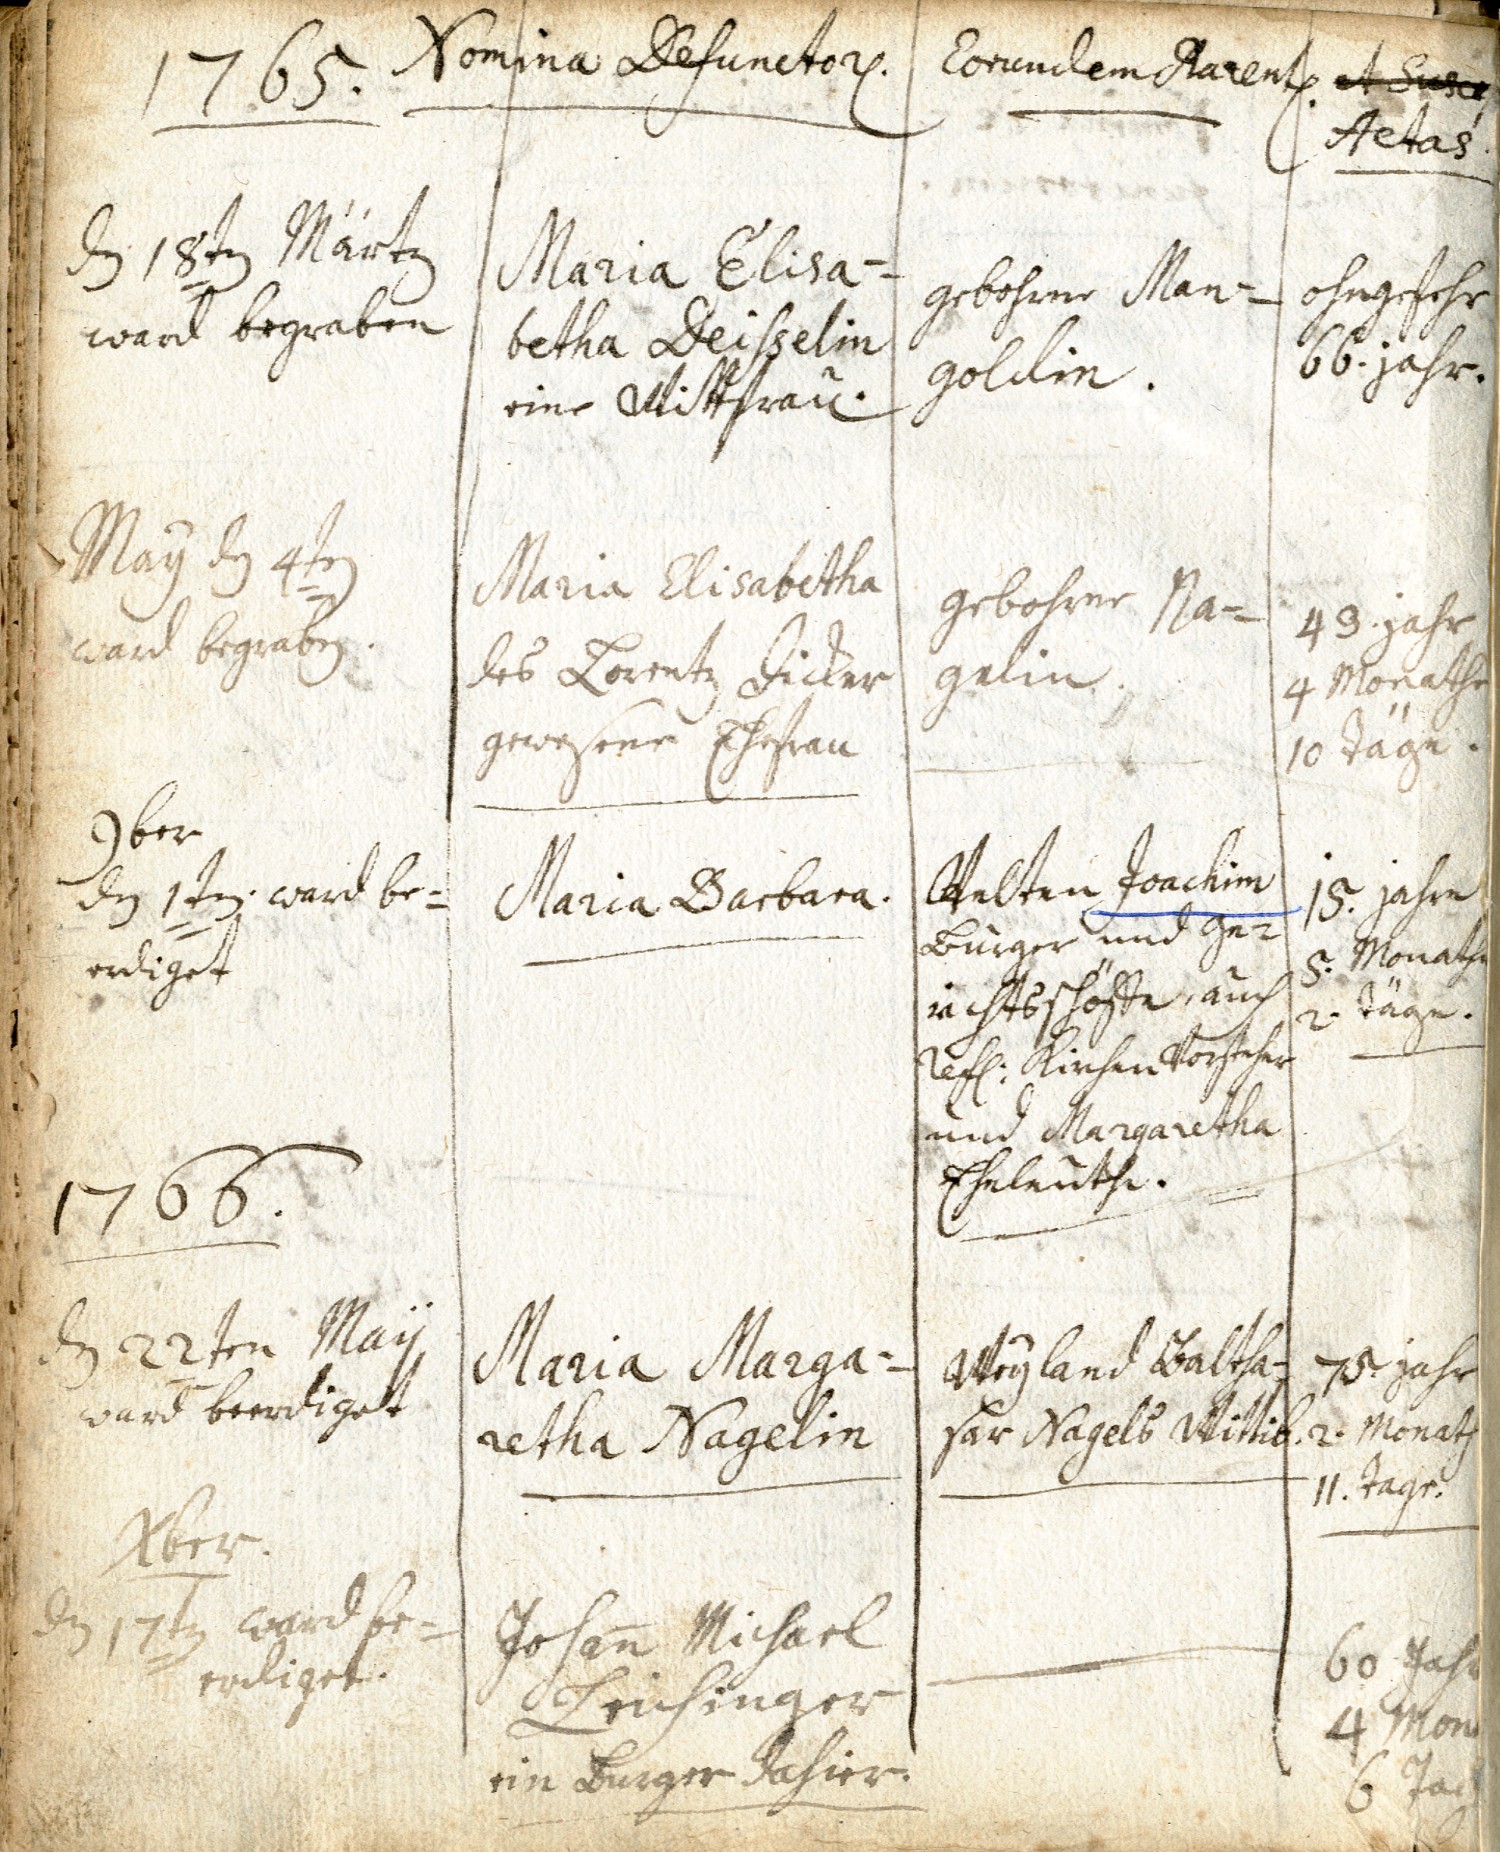 1765. Nomina Defunctor. Eorundem Parent. et Susc.
Aetas.
dn 18tn Märtz
ward begraben
Maria Elisa-
betha Deisselin
eine Wittfrau.
gebohrne Man-
goldin.
ohngefehr
66. jahr.
May dn 4tn
ward begrabn.
Maria Elisabetha
des Lorentz Dicker
gewesene Ehefrau
gebohrne Na-
gelin.
43. jahr
4 Monathe
10 Täge.
9ber
dn 1tn. ward be-
erdiget
Maria Barbara.
Velten Joachim
Burger und Ge-
richtsschöffe, auch
ref: Kirchen Vorsteher
und Margaretha
Eheleuthe.
15. jahre
5. Monathe
2. Täge.
1766.
dn 22ten Maÿ
ward beerdiget
Maria Marga-
retha Nagelin
Weyland Baltha-
sar Nagels Wittib.
75. jahr
2. Monath
11. Tage.
Xber.
dn 17tn ward be-
erdiget.
Johann Michael
Leichinger
ein Burger dahier.
60 Jahr
4 Mon
6 Tag